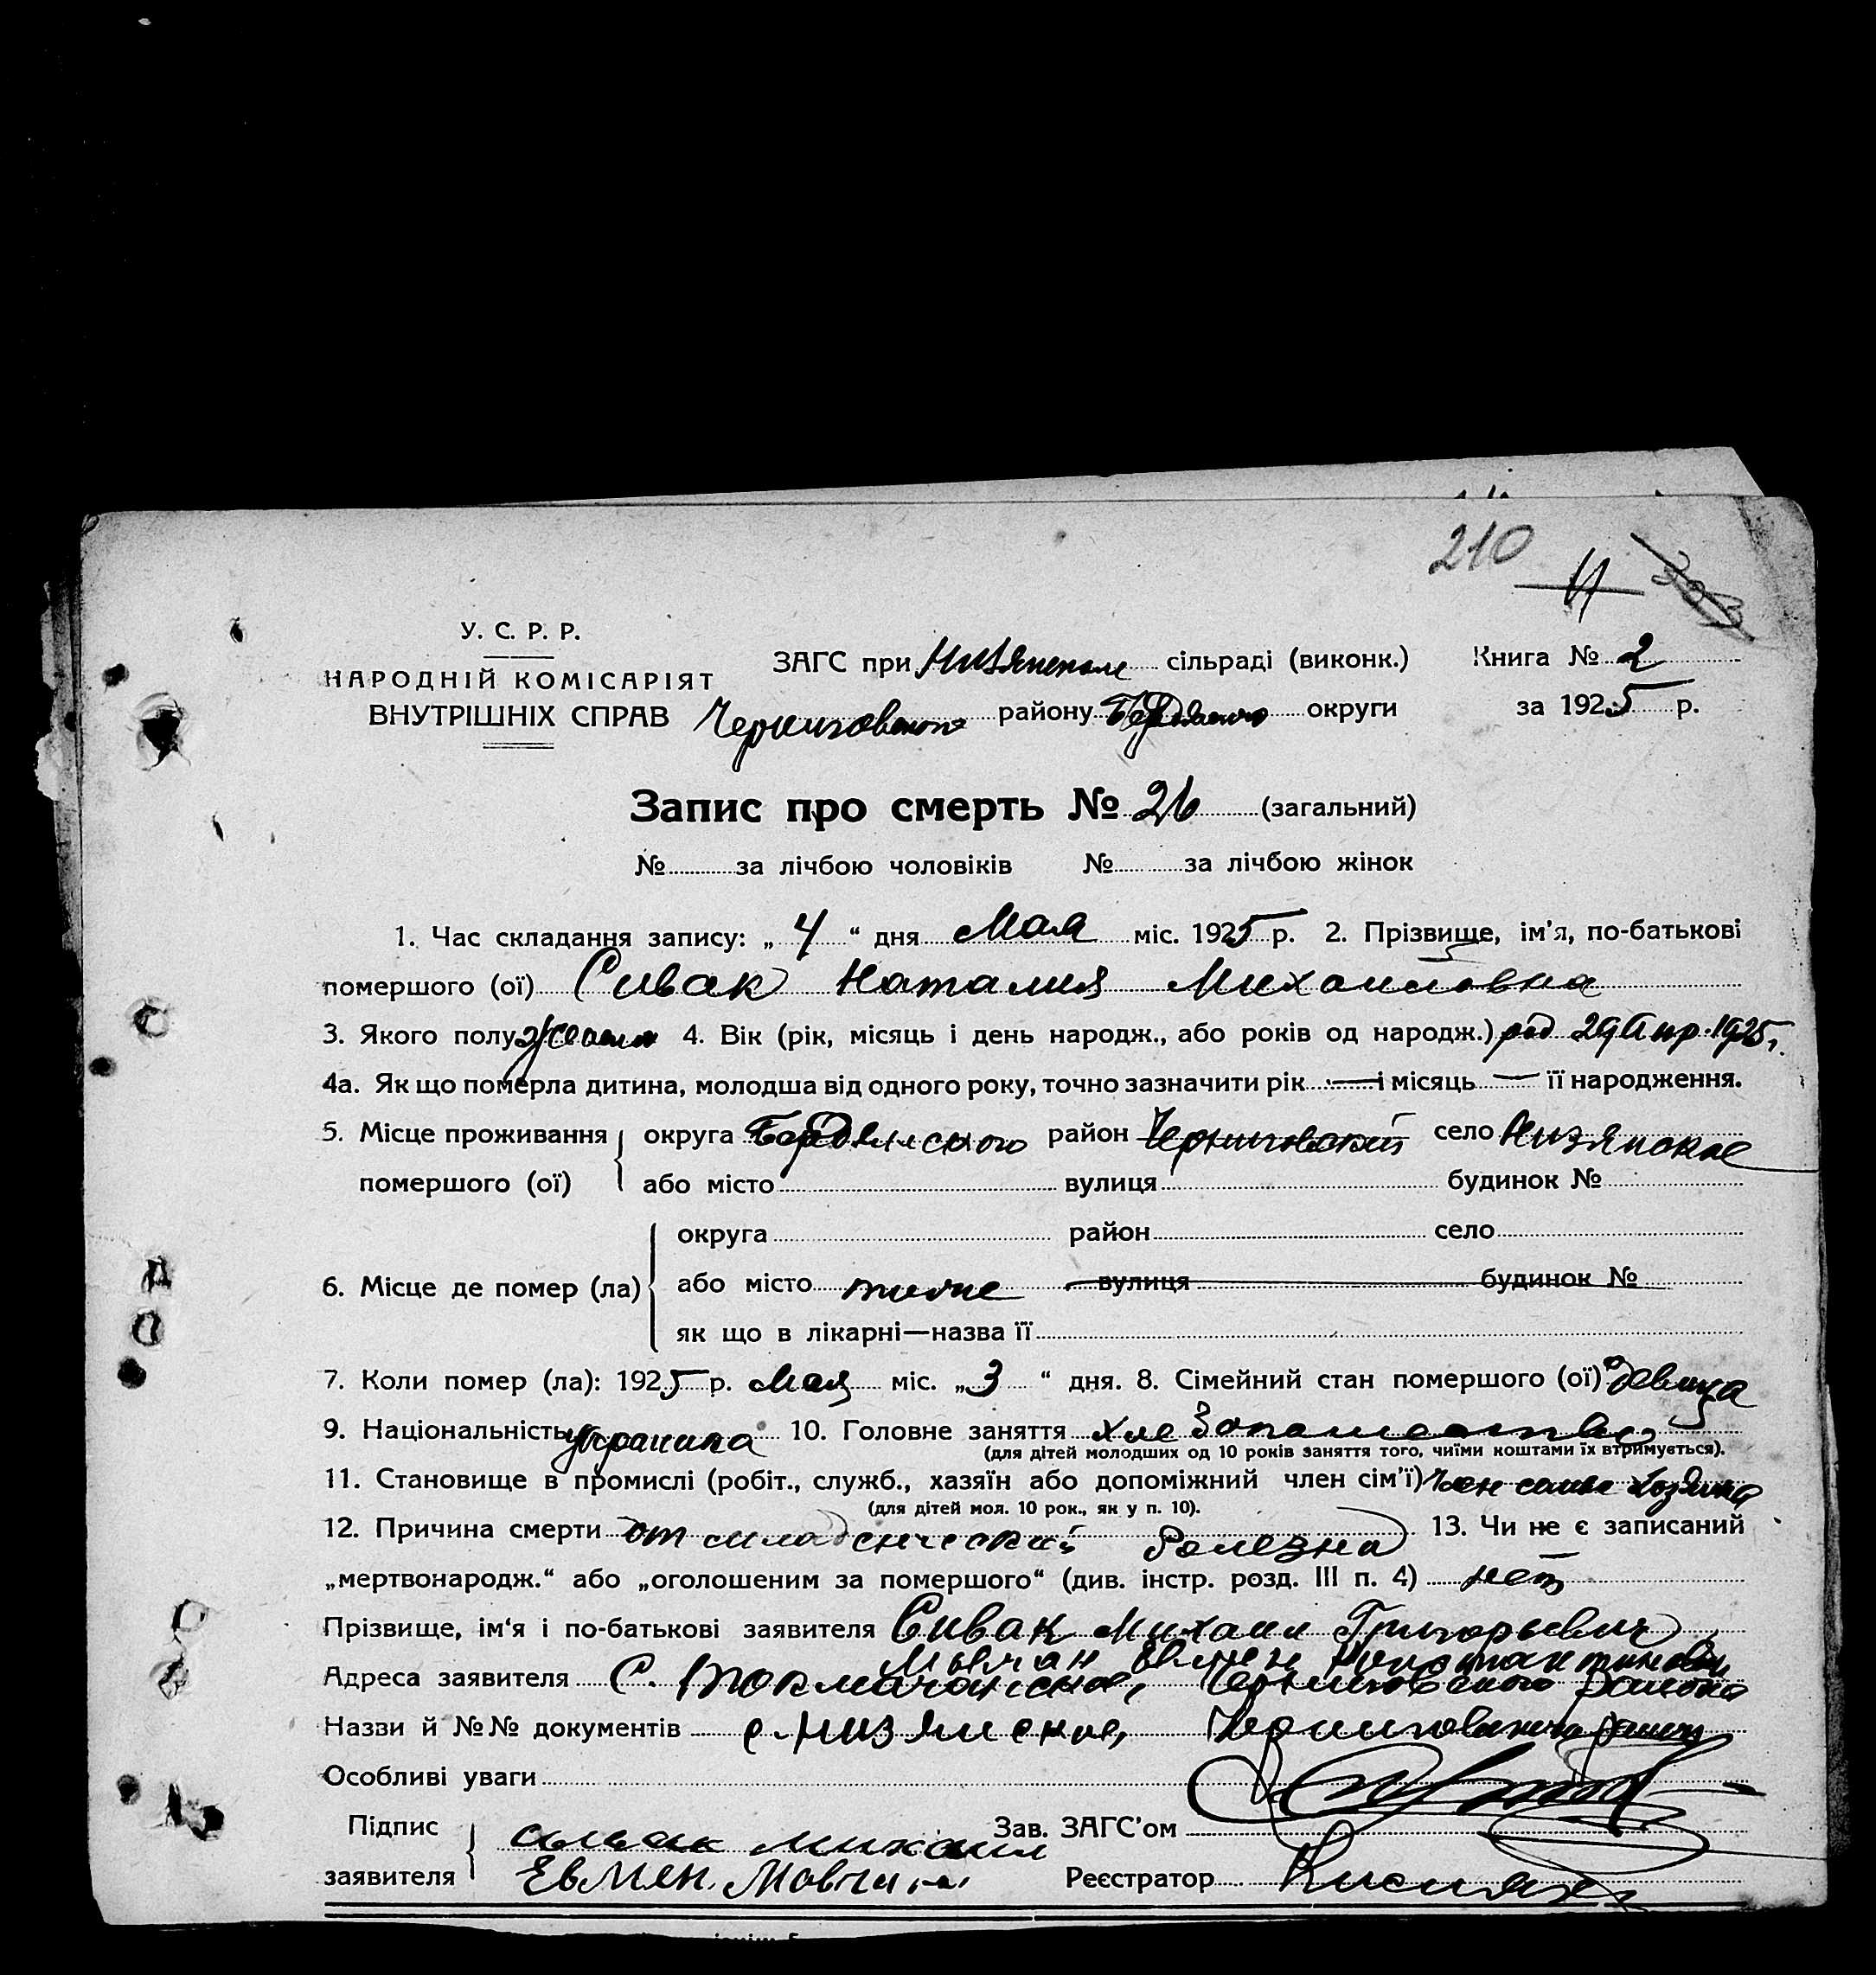 210
11
У. С. Р. Р.
НАРОДНІЙ КОМІСАРІЯТ
ВНУТРІШНІХ СПРАВ
ЗАГС при сільраді (виконк.) Книга № 2
Черниговского району Бердянского округи за 1925 р.
Запис про смерть № 26 (загальний)
№ за лічбою чоловіків № за лічбою жінок
1. Час складання запису: „ 4 “ дня Мая міс. 1925 р. 2. Прізвище, ім'я, по-батькові
помершого (ої) Сивак Наталия Михайловна
3. Якого полу 4. Вік (рік, місяць і день народж., або років од народж.) род 29 Апр. 1925 г.
4а. Як що померла дитина, молодша від одного року, точно зазначити рік — і місяць — її народження.
5. Місце проживання округа Бердянского район Черниговский село Низянское
помершого (ої) або місто вулиця будинок №
округа район село
6. Місце де помер (ла) або місто тоже вулиця будинок №
як що в лікарні—назва її
7. Коли помер (ла): 1925 р. Мая міс. „ 3 “ дня. 8. Сімейний стан помершого (ої) девица
9. Національність украинка 10. Головне заняття хлебопашество
(для дітей молодших од 10 років заняття того, чиїми коштами їх втримується).
11. Становище в промислі (робіт., служб., хазяїн або допоміжний член сім'ї) член семьи хозяина
(для дітей мол. 10 рок., як у п. 10).
12. Причина смерти от младенческий болезни 13. Чи не є записаний
„мертвонародж.“ або „оголошеним за помершого“ (див. інстр. розд. III п. 4) нет
Прізвище, ім'я і по-батькові заявителя Сивак Михаил Григорьевич
Евмен Константинович
Адреса заявителя С. Токмачанское, Черниговского района
Назви й №№ документів с Низянское, Черниговского района
Особливі уваги
Підпис Сывак Михаил Зав. ЗАГС'ом
заявителя Евмен. Мовчан Реєстратор